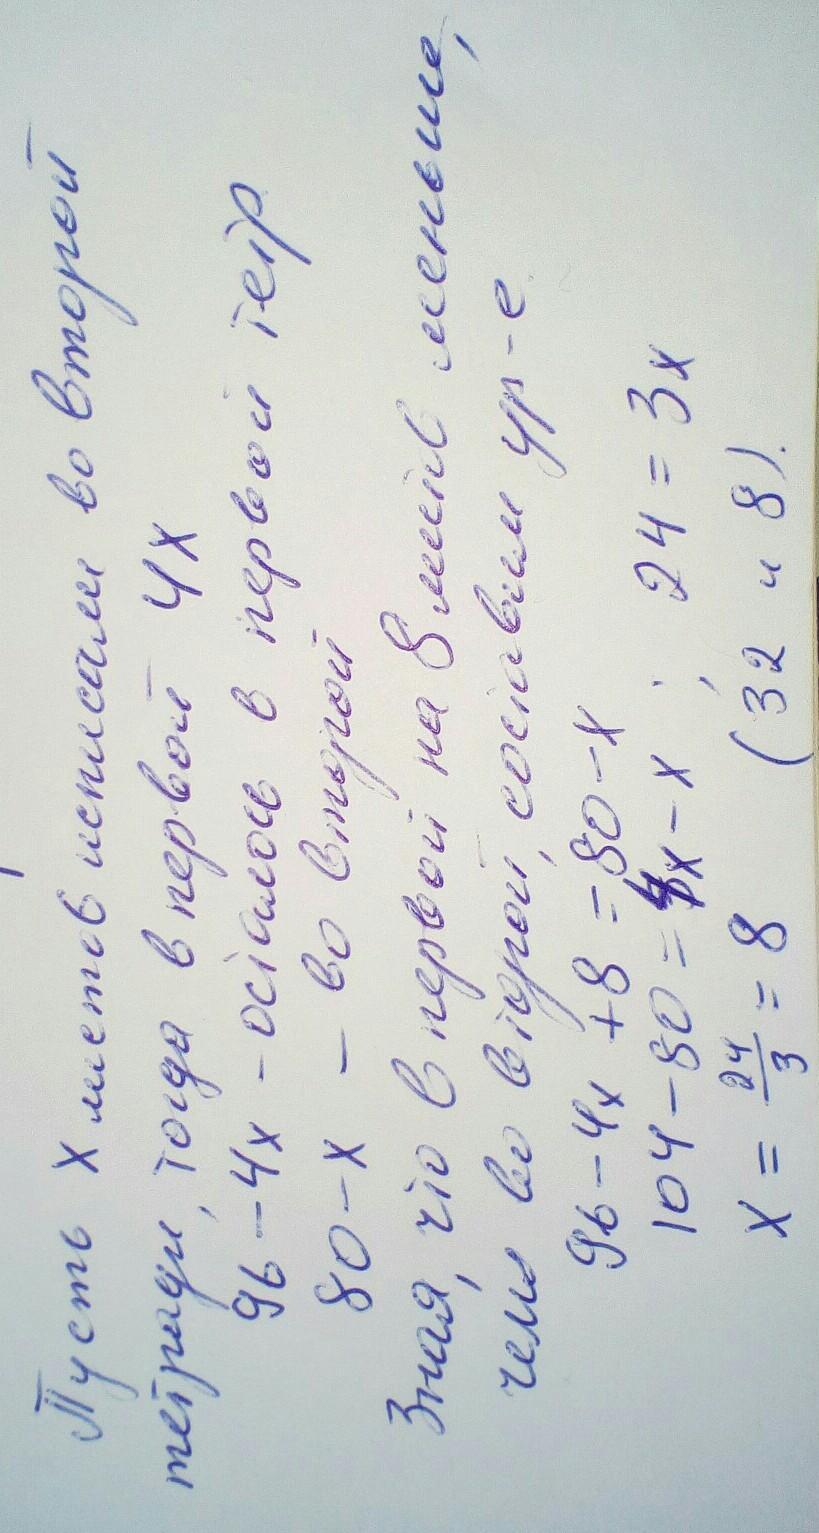 Пусть x листов исписали во второй
тетради, тогда в первой 4x
96 - 4x - осталось в первой тетр
80 - x - во второй
Зная, что в первой на 8 листов меньше,
чем во второй, составим ур-е
96 - 4x + 8 = 80 - x
104 - 80 = 4x - x ; 24 = 3x
x = 24/3 = 8 (32 и 8).